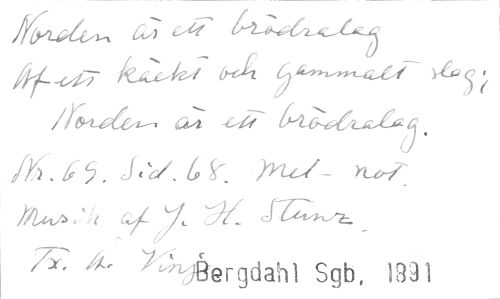 Norden är ett brödralag
Af ett käckt och gammalt slag;
Norden är ett brödralag.
Nr. 69. Sid. 68. Mel - not.
Musik af J. H. Stunz.
Tx. A. Vinje
Bergdahl Sgb, 1891